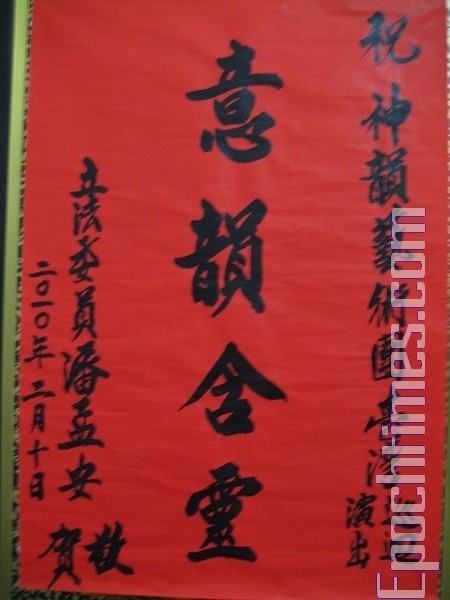 祝神韻藝術團臺灣巡迴
演出
意韻含靈
立法委員潘孟安
敬賀
二〇一〇年二月十日
Epochtimes.com